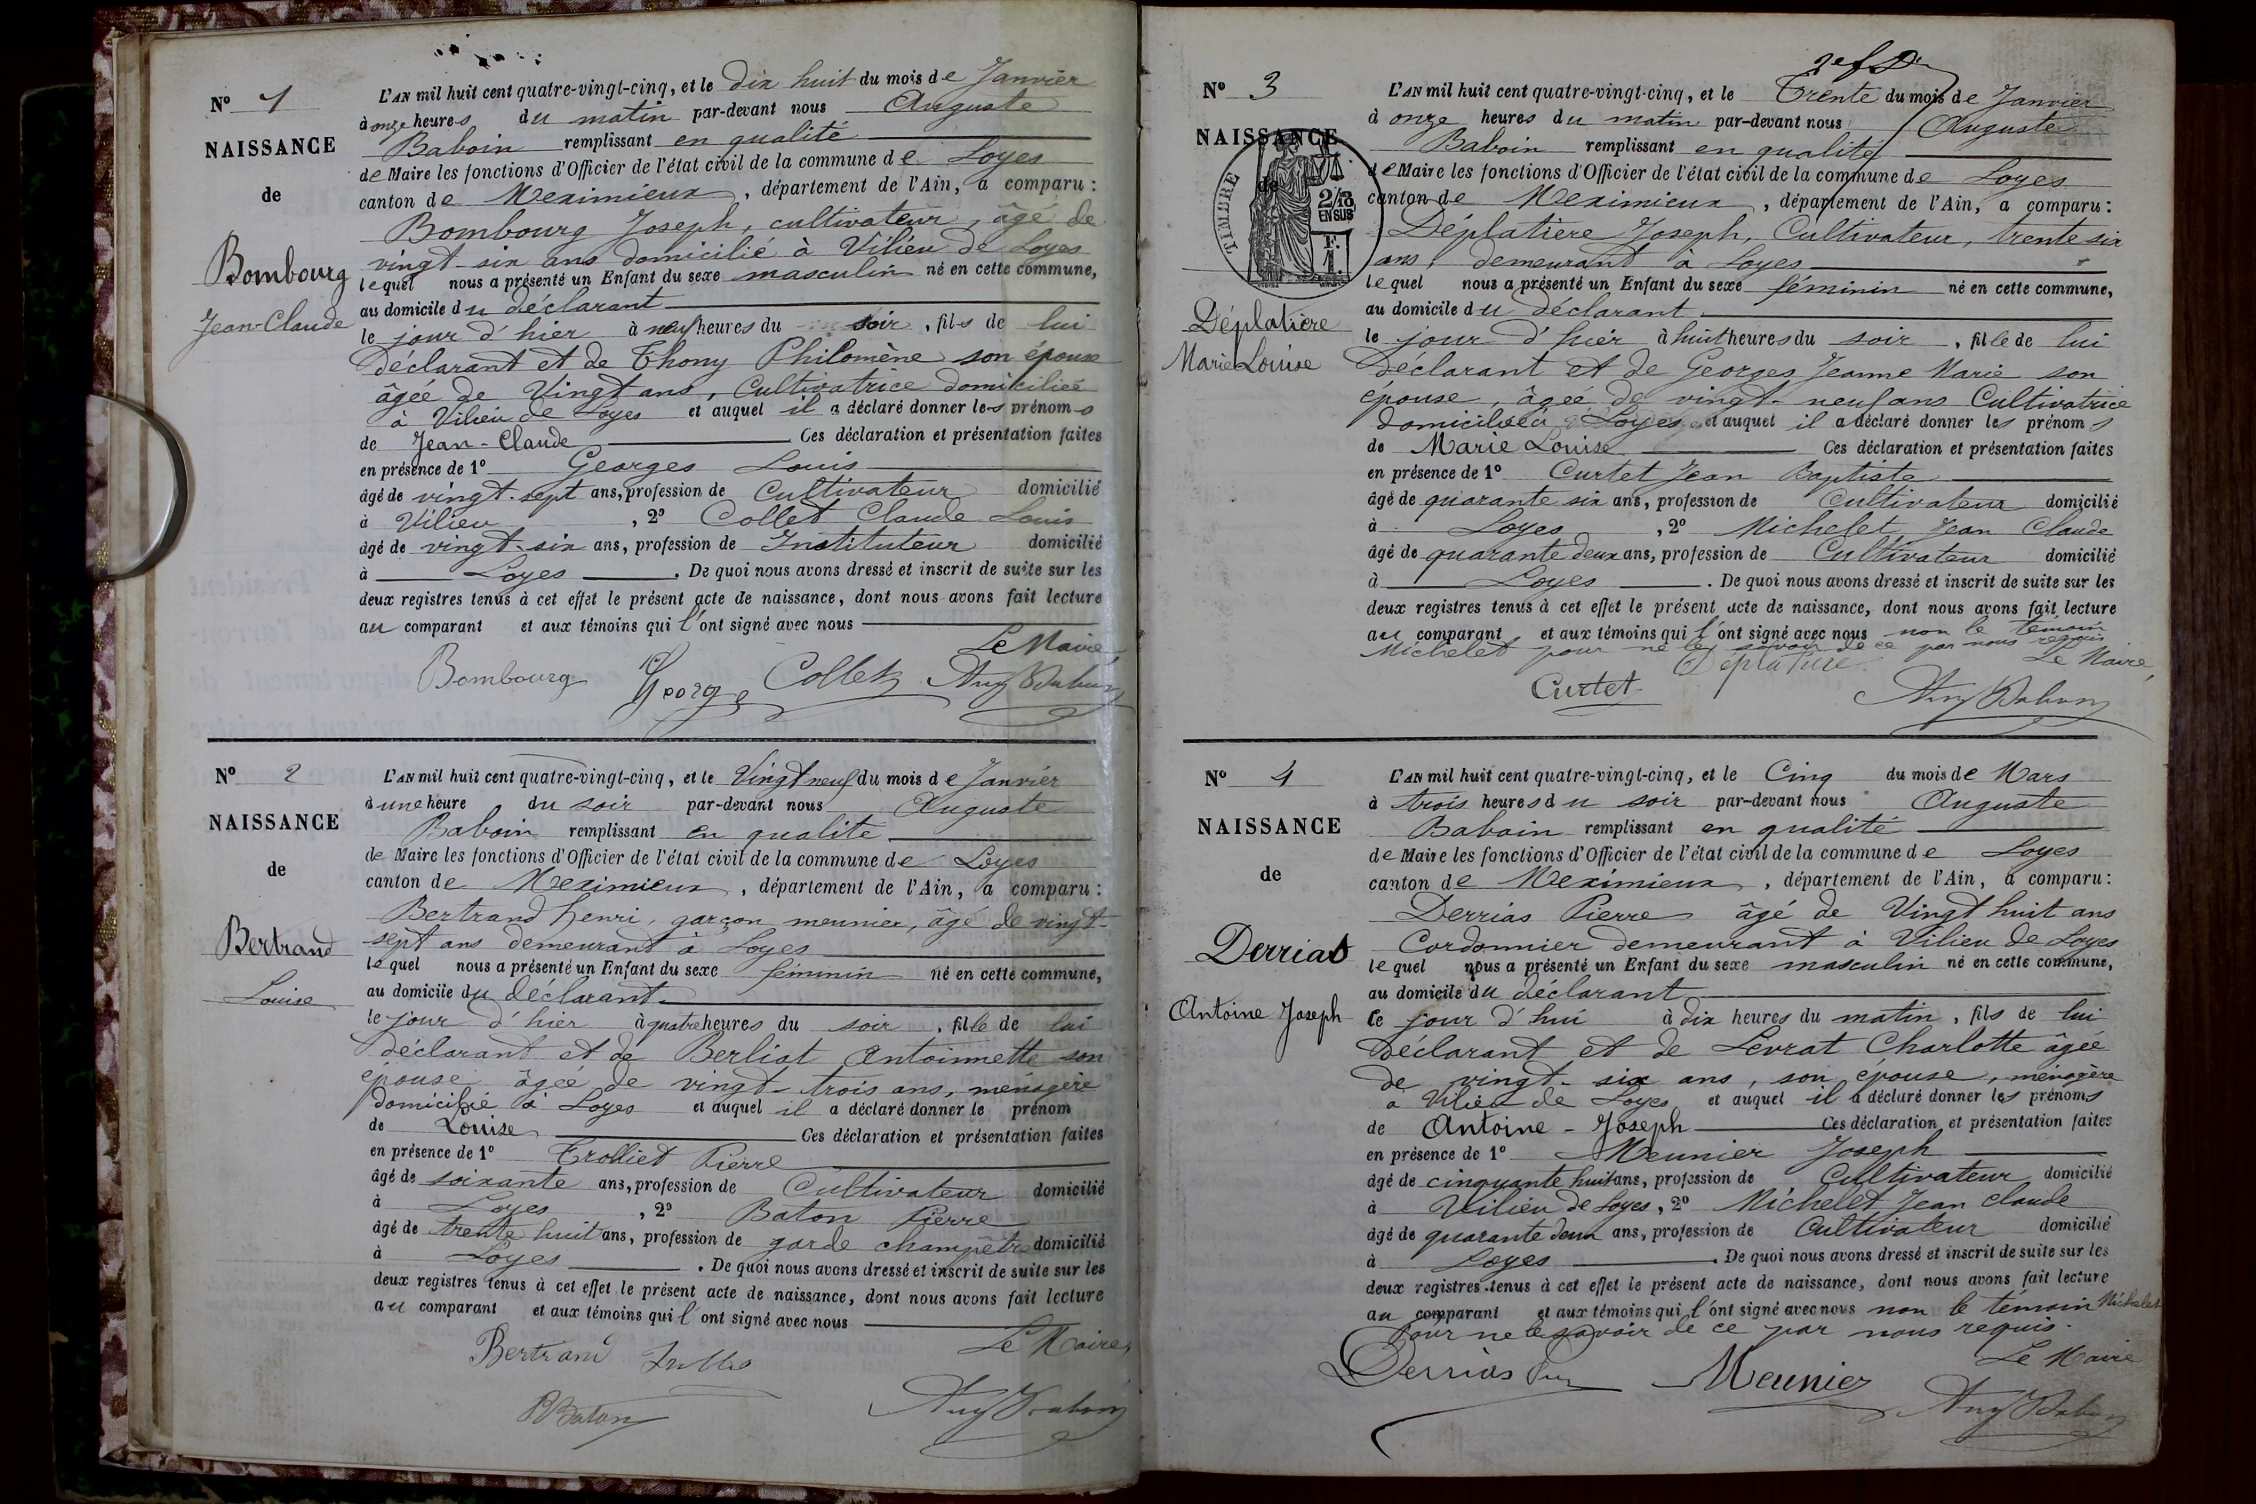 N° 1
NAISSANCE
de
Bombourg
Jean-Claude
L'AN mil huit cent quatre-vingt-cinq, et le dix huit du mois de Janvier
à onze heures du matin par-devant nous Auguste
Baboin remplissant en qualité
de Maire les fonctions d'Officier de l'état civil de la commune de Loyes
canton de Meximieux, département de l'Ain, a comparu :
Bombourg Joseph, cultivateur, âgé de
vingt-six ans domicilié à Vilieu de Loyes
lequel nous a présenté un Enfant du sexe masculin né en cette commune,
au domicile du déclarant
le jour d'hier à neuf heures du soir, fils de lui
déclarant et de Thony Philomène son épouse
âgée de Vingt ans, Cultivatrice domiciliée
à Vilieu de Loyes et auquel il a déclaré donner les prénoms
de Jean-Claude Ces déclaration et présentation faites
en présence de 1° Georges Louis
âgé de vingt-sept ans, profession de Cultivateur domicilié
à Vilieu, 2° Collet Claude Louis
âgé de vingt-six ans, profession de Instituteur domicilié
à Loyes. De quoi nous avons dressé et inscrit de suite sur les
deux registres tenus à cet effet le présent acte de naissance, dont nous avons fait lecture
au comparant et aux témoins qui l'ont signé avec nous
Le Maire
Bombourg George Collet Aug Baboin
N° 2
NAISSANCE
de
Bertrand
Louise
L'AN mil huit cent quatre-vingt-cinq, et le Vingt neuf du mois de Janvier
à une heure du soir par-devant nous Auguste
Baboin remplissant en qualité
de Maire les fonctions d'Officier de l'état civil de la commune de Loyes
canton de Meximieux, département de l'Ain, a comparu :
Bertrand henri, garçon meunier, âgé de vingt-
sept ans demeurant à Loyes
lequel nous a présenté un Enfant du sexe féminin né en cette commune,
au domicile du déclarant
le jour d'hier à quatre heures du soir, fille de lui
déclarant et de Berliat Antoinnette son
épouse âgée de vingt-trois ans, ménagère
domicilié à Loyes et auquel il a déclaré donner le prénom
de Louise Ces déclaration et présentation faites
en présence de 1° Trolliet Pierre
âgé de soixante ans, profession de Cultivateur domicilié
à Loyes, 2° Baton Pierre
âgé de trente huit ans, profession de garde champêtre domicilié
à Loyes. De quoi nous avons dressé et inscrit de suite sur les
deux registres tenus à cet effet le présent acte de naissance, dont nous avons fait lecture
au comparant et aux témoins qui l'ont signé avec nous
Bertrand Le Maire,
Baton Aug Baboin
N° 3
NAISSANCE
de
TIMBRE
2/10
EN SUS
1 F.
Déplatière
Marie Louise
L'AN mil huit cent quatre-vingt-cinq, et le Trente du mois de Janvier
à onze heures du matin par-devant nous Auguste
Baboin remplissant en qualité
de Maire les fonctions d'Officier de l'état civil de la commune de Loyes
canton de Meximieux, département de l'Ain, a comparu :
Déplatière Joseph, Cultivateur, trente six
ans, demeurant à Loyes
lequel nous a présenté un Enfant du sexe féminin né en cette commune,
au domicile du déclarant
le jour d'hier à huit heures du soir, fille de lui
déclarant et de Georges Jeanne Marie son
épouse, âgée de vingt-neuf ans Cultivatrice
domiciliée à Loyes et auquel il a déclaré donner les prénoms
de Marie Louise Ces déclaration et présentation faites
en présence de 1° Curtet Jean Baptiste
âgé de quarante six ans, profession de Cultivateur domicilié
à Loyes, 2° Michelet Jean Claude
âgé de quarante deux ans, profession de Cultivateur domicilié
à Loyes. De quoi nous avons dressé et inscrit de suite sur les
deux registres tenus à cet effet le présent acte de naissance, dont nous avons fait lecture
au comparant et aux témoins qui l'ont signé avec nous non le témoin
Michelet pour ne le savoir de ce par nous requis
Déplatière Le Maire,
Curtet Aug Baboin
N° 4
NAISSANCE
de
Derrias
Antoine Joseph
L'AN mil huit cent quatre-vingt-cinq, et le Cinq du mois de Mars
à trois heures du soir par-devant nous Auguste
Baboin remplissant en qualité
de Maire les fonctions d'Officier de l'état civil de la commune de Loyes
canton de Meximieux, département de l'Ain, a comparu :
Derrias Pierre âgé de Vingt huit ans
Cordonnier demeurant à Vilieu de Loyes
lequel nous a présenté un Enfant du sexe masculin né en cette commune,
au domicile du déclarant
ce jour d'hui à dix heures du matin, fils de lui
déclarant et de Levrat Charlotte âgée
de vingt-six ans, son épouse, ménagère
à Vilieu de Loyes et auquel il a déclaré donner les prénoms
de Antoine-Joseph Ces déclaration et présentation faites
en présence de 1° Meunier Joseph
âgé de cinquante huit ans, profession de Cultivateur domicilié
à Vilieu de Loyes, 2° Michelet Jean Claude
âgé de quarante deux ans, profession de Cultivateur domicilié
à Loyes. De quoi nous avons dressé et inscrit de suite sur les
deux registres tenus à cet effet le présent acte de naissance, dont nous avons fait lecture
au comparant et aux témoins qui l'ont signé avec nous non le témoin Michelet
pour ne le savoir de ce par nous requis.
Le Maire
Derrias Meunier Aug Baboin